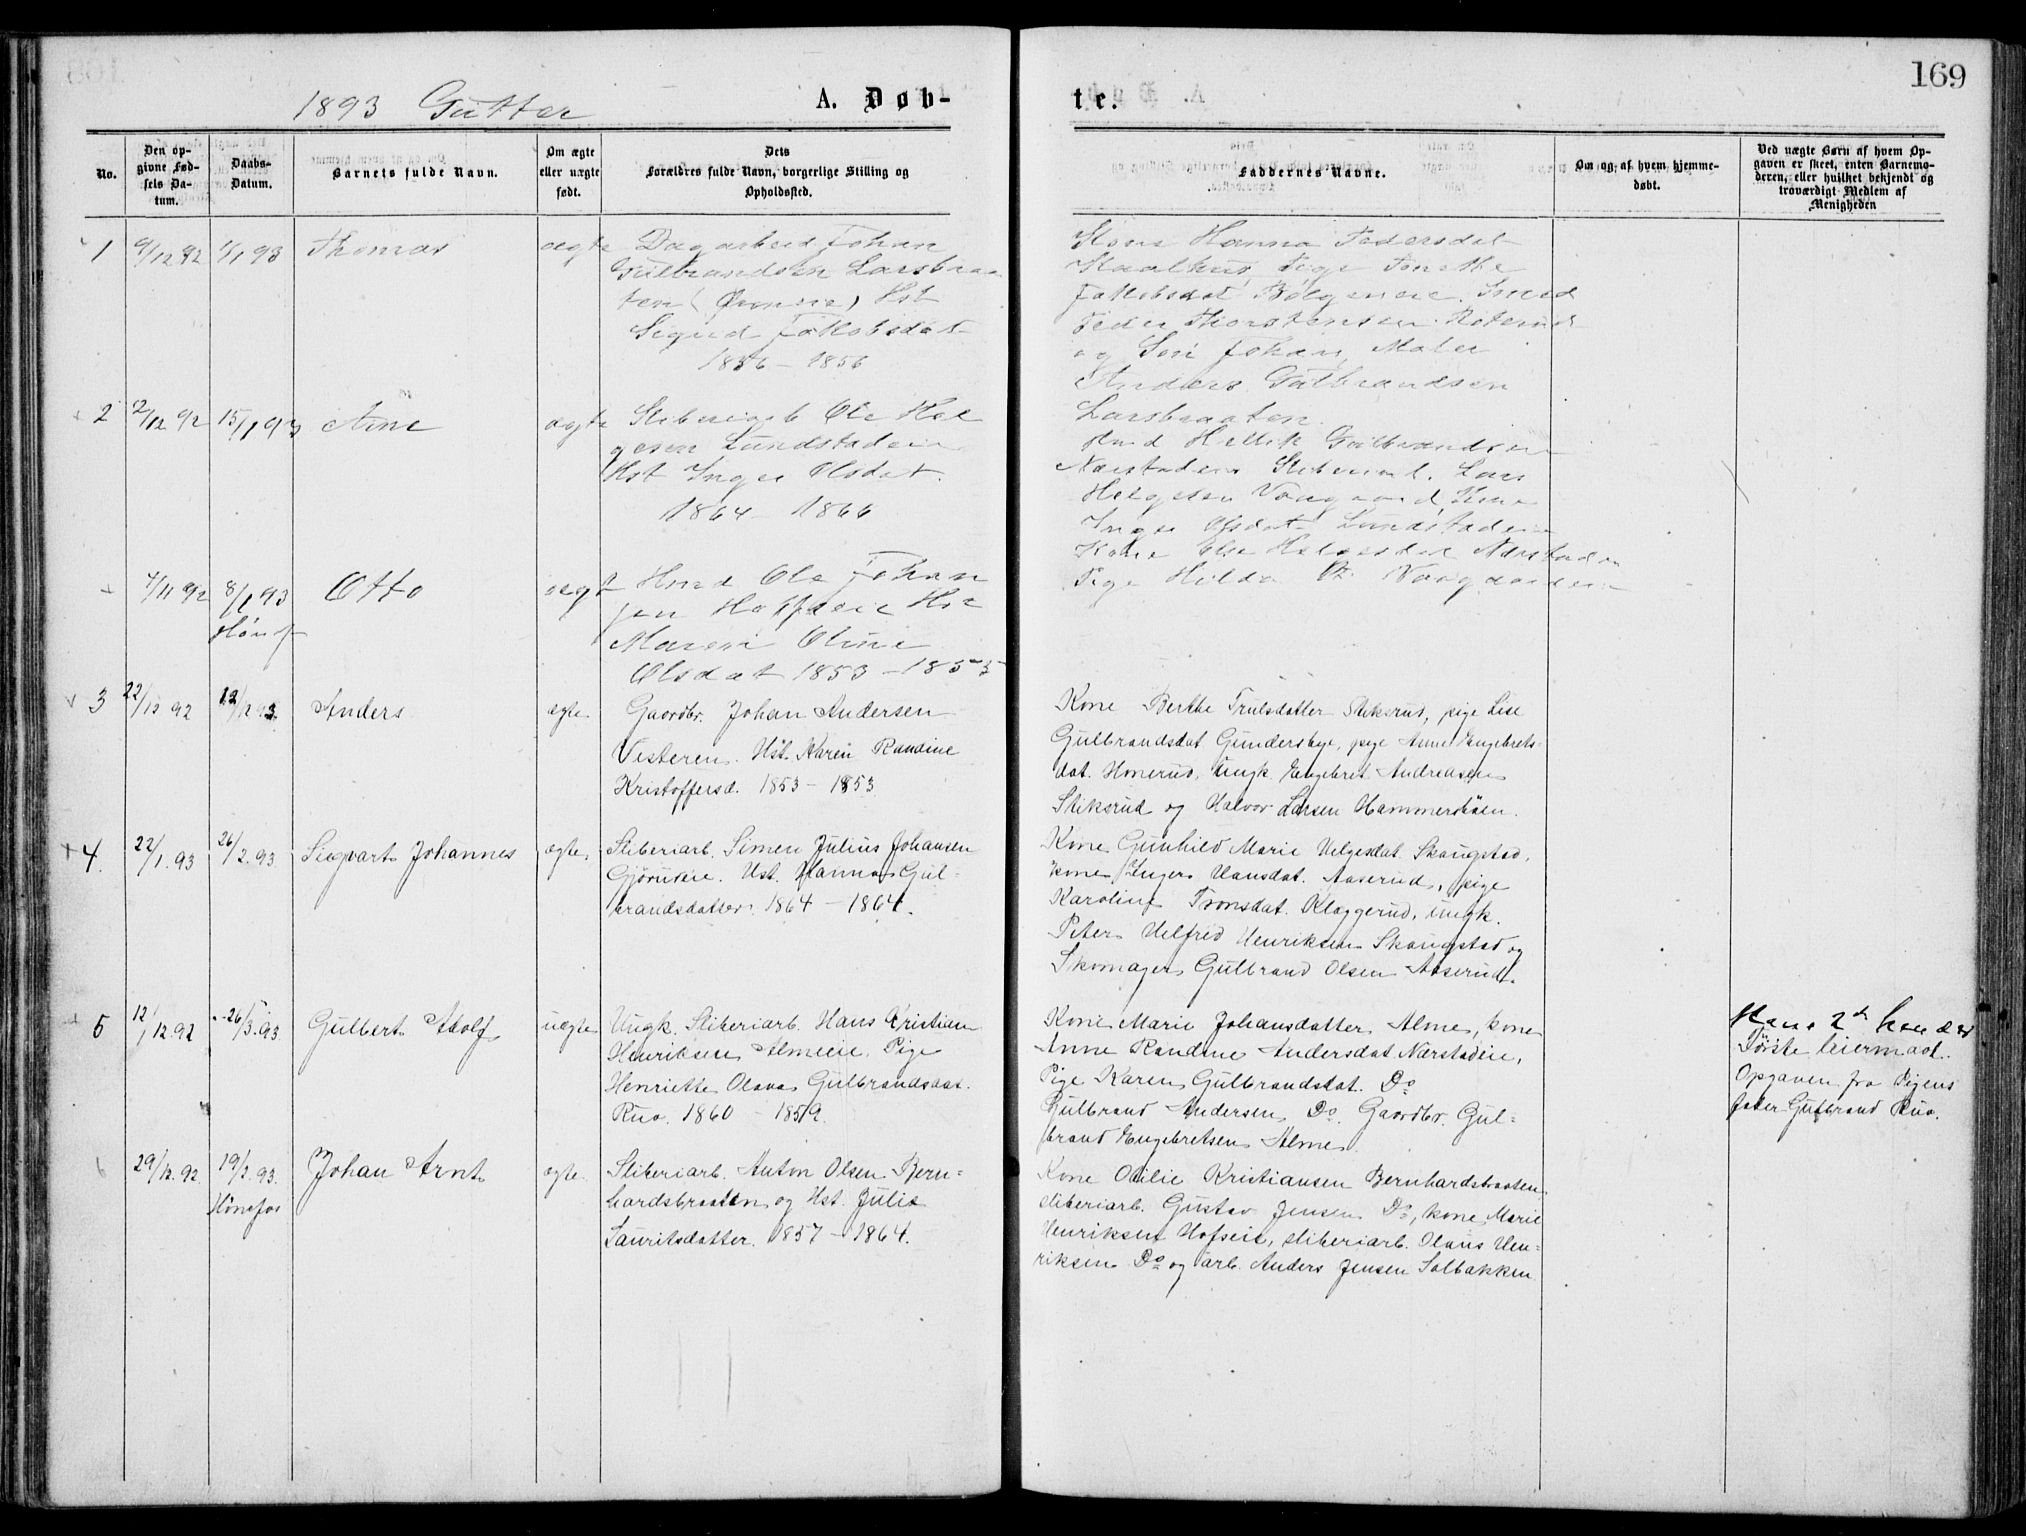 1893 Gutter
A. Døb-
te.
169
No.
Den op-
givne Fød-
sels Da-
tum.
Daabs-
Datum.
Barnets fulde Navn.
Om ægte
eller uægte
født.
Dets
Forældres fulde Navn, borgerlige Stilling og
Opholdssted.
Faddernes Navne.
Om og af hvem hjemme-
døbt.
Ved uægte Børn af hvem Op-
gaven er skeet, enten Barnemo-
deren, eller hvilket bekjendt og
troværdigt Medlem af
Menigheden
1
1/1 93
Thomas
ægte
Dagarbeid Johan
Gulbrandsen Larsbraa
ten Hst
Sigrid Jakobsdat
1856
Hanna Pedersdat
Pige
Jakobsdat
Peder Thorstensen
og Johan, Maler
Anders Gulbrandsen
Larsbraaten
2
12/12 92
15/1 93
Arne
ægte
Sliberiarb Ole Hel
gesen Lundstadeie
Hst Inger Olsdat.
1864 - 1866
Hellik Gulbrandsen
Nærstadeie Sliberiarb. Lars
Helgesen Kone
Inger Olsdat Lundstadeie
Kone Else Helgesdat Nærstadeie
Pige Hilda
8/1 93
Hønef
Otto
ægt
Ole Johan
sen Hst
Maren Oline
Olsdat 1853 - 1855
3
22/12 92
Anders
ægte
Gaardbr. Johan Andersen
Vesteren. Hst. Karen Randine
Kristoffersd. 1853 - 1853
Kone Berthe Trulsdatter Sliksrud, pige Lise
Gulbrandsdat. Gundersbye, pige Anne Engebrets-
dat. Honerud, Ungk. Engebret Andreasen
Sliksrud og Halvor Larsen Hammershøien.
4.
22/1.93
26/2.93.
Sigvart Johannes
ægte.
Sliberiarb. Simen Julius Johansen
Hst. Hanna Gul-
brandsdatter. 1864 - 1864.
Kone Gunhild Marie Helgesdat. Skaugstad,
kone Inger Hansdat. Aaserud, pige
Karoline Tronsdat. Klæggerud, ungk.
Peter Helfred Henriksen Skaugstad og
Skomager Gulbrand Olsen Aaserud.
5
12/12.92
26/3.93.
Gulbert Adolf
uægte
Ungk. Sliberiarb. Hans Kristian
Henriksen Almeie. Pige
Henriette Olava Gulbrandsdat.
Rua. 1860 - 1859.
Kone Marie Johansdatter Alme, kone
Anne Randine Andersdat. Nærstadeie,
Pige Karen Gulbrandsdat. Do
Gulbrand Andersen Do. Gaardbr. Gul-
brand Engebretsen Alme.
Hans 2det hendes
Første leiermaal.
Opgaven fra Pigens
fader Gulbrand Rua.
6
29/12.92.
19/2.93.
Hønefos
Johan Arnt
ægte.
Sliberiarb. Anton Olsen Bern-
hardsbraaten og Hst. Julie
Lauritsdatter. 1857 - 1864.
Kone Otilie Kristiansen Bernhardsbraaten,
sliberiarb. Gustav Jensen Do, kone Marie
Henriksen Hofseie, sliberiarb. Olaus Hen-
riksen Do og arb. Anders Jensen Solbakken